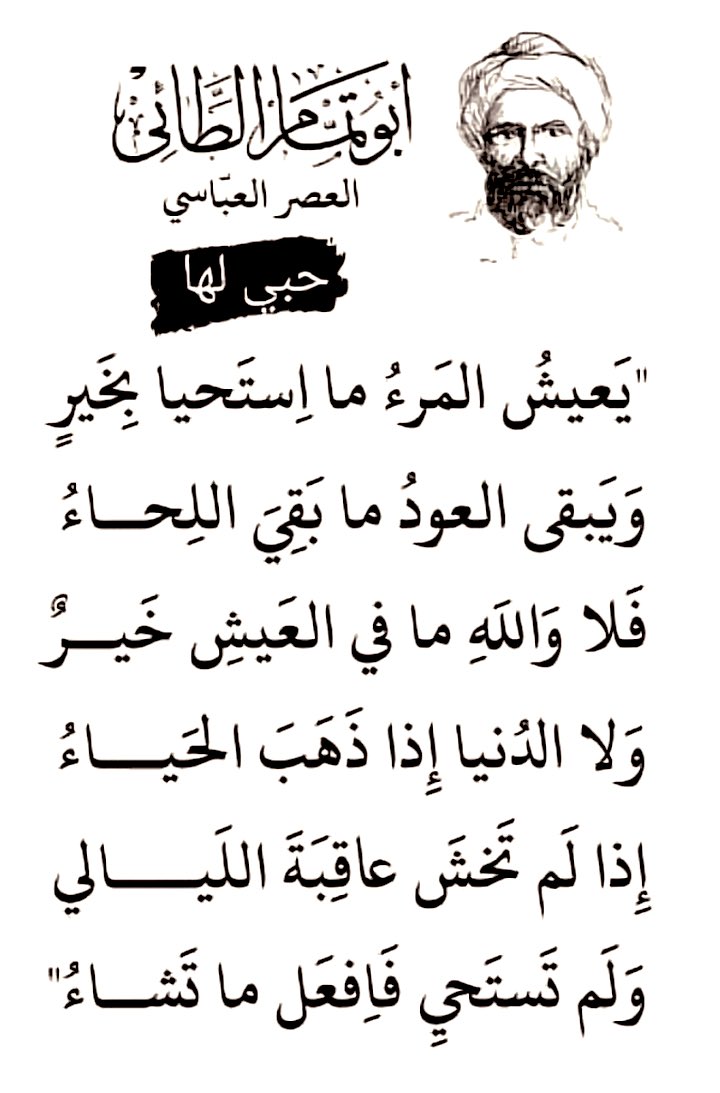 أبو تمّام الطّائي
العصر العبّاسي
حبي لها
"يَعيشُ المَرءُ ما اِستَحيا بِخَيرٍ
وَيَبقى العودُ ما بَقِيَ اللِحـــاءُ
فَلا وَاللَهِ ما في العَيشِ خَيـــرٌ
وَلا الدُنيا إِذا ذَهَبَ الحَيـــاءُ
إِذا لَم تَخشَ عاقِبَةَ اللَيـــالي
وَلَم تَستَحيِ فَاِفعَل ما تَشـــاءُ"